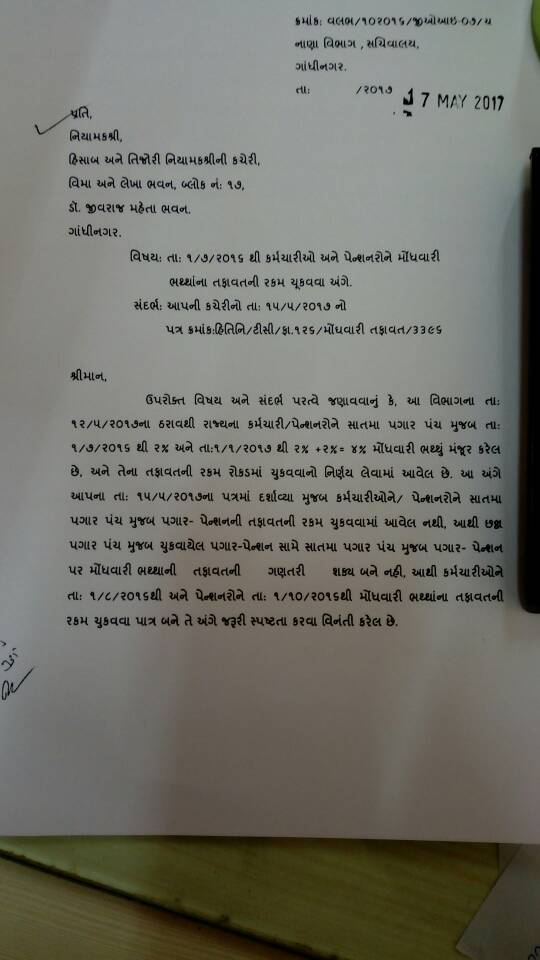 ક્રમાંક: વલભ/૧૦૨૦૧૬/જીઓઆઇ-૦૭/ચ
નાણા વિભાગ , સચિવાલય,
ગાંધીનગર.
તા: /૨૦૧૭ 17 MAY 2017
પ્રતિ,
નિયામકશ્રી,
હિસાબ અને તિજોરી નિયામકશ્રીની કચેરી,
વિમા અને લેખા ભવન, બ્લોક નં: ૧૭,
ડૉ. જીવરાજ મહેતા ભવન.
ગાંધીનગર.
વિષય: તા: ૧/૭/૨૦૧૬ થી કર્મચારીઓ અને પેન્શનરોને મોંઘવારી
ભથ્થાંના તફાવતની રકમ ચૂકવવા અંગે.
સંદર્ભ: આપની કચેરીનો તા: ૧૫/૫/૨૦૧૭ નો
પત્ર ક્રમાંક:હિતિનિ/ટીસી/ફા.૧૨૬/મોંઘવારી તફાવત/૩૩૯૬
શ્રીમાન,
ઉપરોક્ત વિષય અને સંદર્ભ પરત્વે જણાવવાનું કે, આ વિભાગના તા:
૧૨/૫/૨૦૧૭ના ઠરાવથી રાજ્યના કર્મચારી/પેન્શનરોને સાતમા પગાર પંચ મુજબ તા:
૧/૭/૨૦૧૬ થી ૨% અને તા:૧/૧/૨૦૧૭ થી ૨% +૨%= ૪% મોંઘવારી ભથ્થું મંજૂર કરેલ
છે, અને તેના તફાવતની રકમ રોકડમાં ચુકવવાનો નિર્ણય લેવામાં આવેલ છે. આ અંગે
આપના તા: ૧૫/૫/૨૦૧૭ના પત્રમાં દર્શાવ્યા મુજબ કર્મચારીઓને/ પેન્શનરોને સાતમા
પગાર પંચ મુજબ પગાર- પેન્શનની તફાવતની રકમ ચુકવવામાં આવેલ નથી, આથી છઠ્ઠા
પગાર પંચ મુજબ ચુકવાયેલ પગાર-પેન્શન સામે સાતમા પગાર પંચ મુજબ પગાર- પેન્શન
પર મોંઘવારી ભથ્થાની તફાવતની ગણતરી શક્ય બને નહી, આથી કર્મચારીઓને
તા: ૧/૮/૨૦૧૬થી અને પેન્શનરોને તા: ૧/૧૦/૨૦૧૬થી મોંઘવારી ભથ્થાંના તફાવતની
રકમ ચુકવવા પાત્ર બને તે અંગે જરૂરી સ્પષ્ટતા કરવા વિનંતી કરેલ છે.